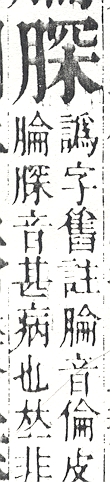 䐅
譌字舊註腀音倫皮
腀䐅音甚病也𠀤非